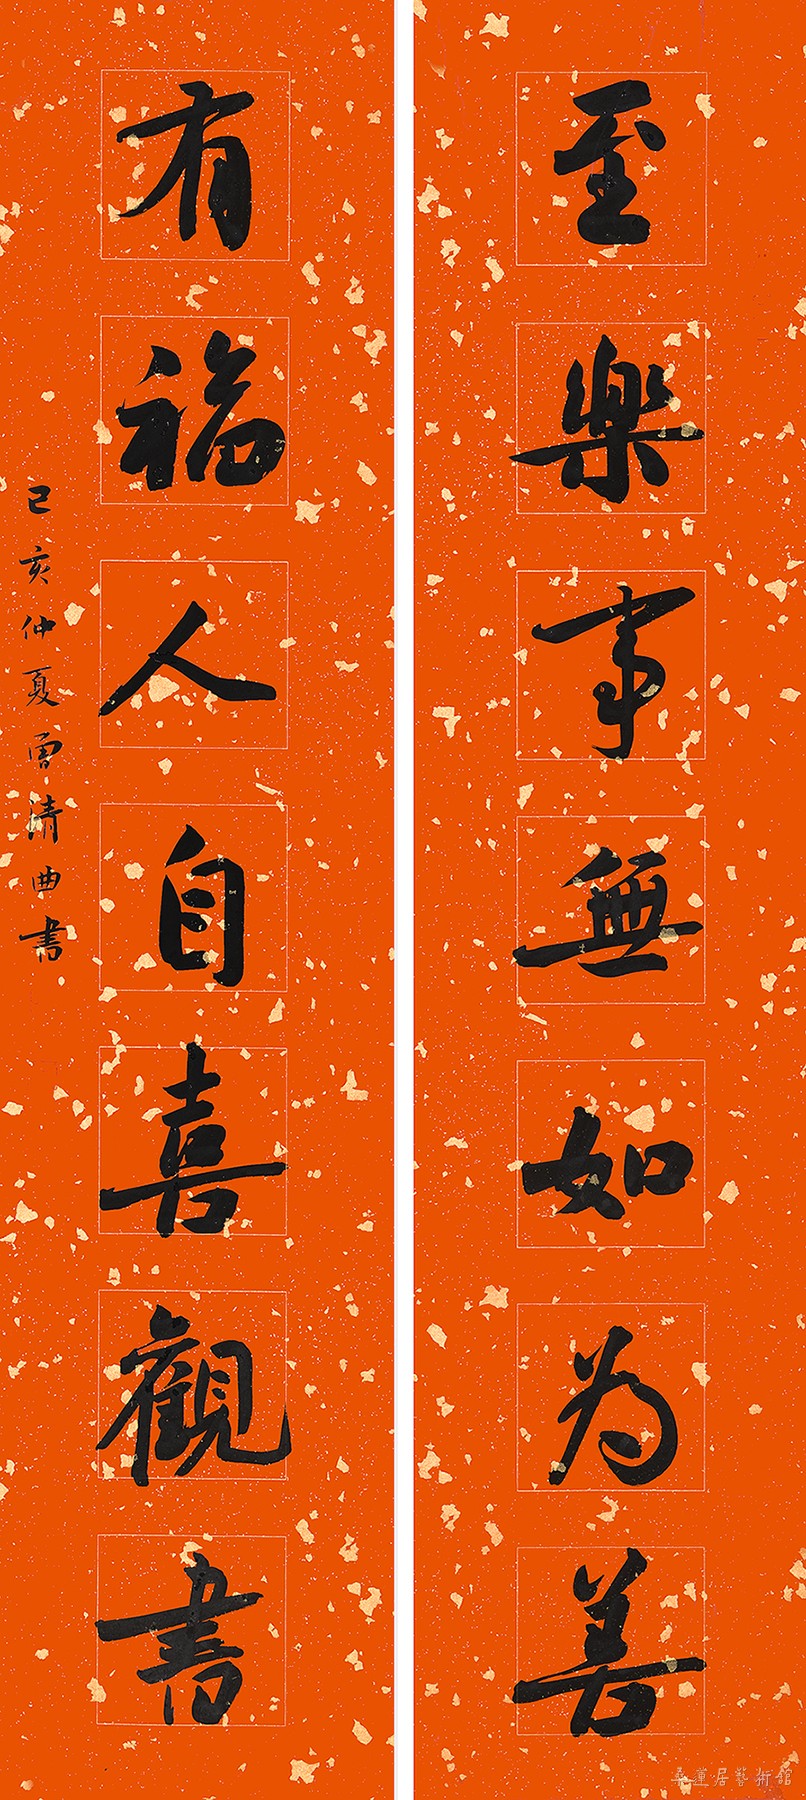 至樂事無如為善
有福人自喜觀書
己亥仲夏曾清曲書
桑蓮居藝術館